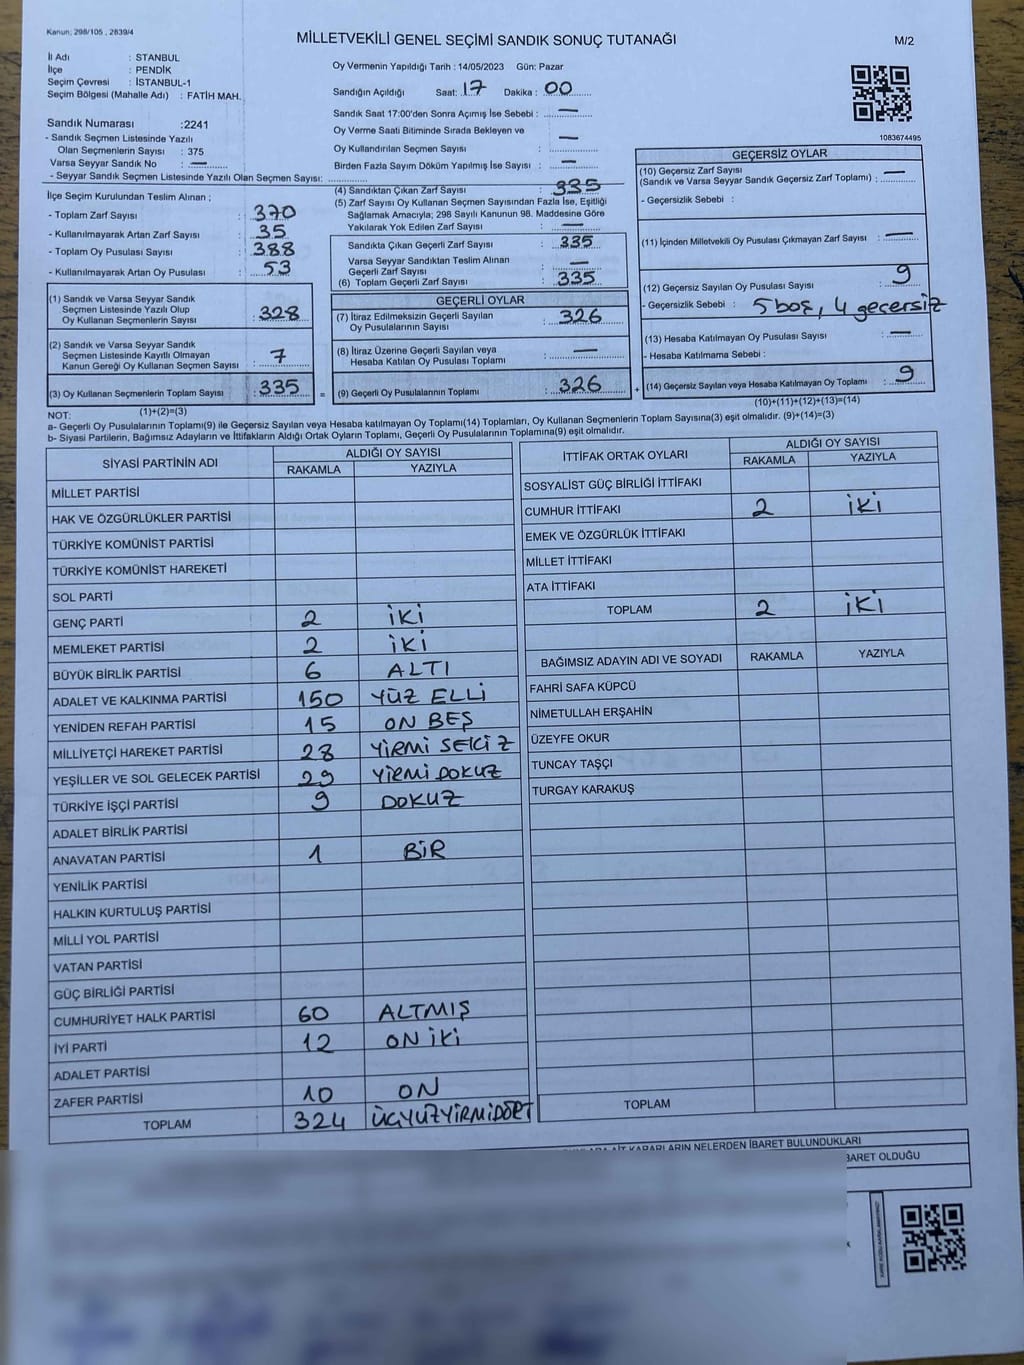 Kanun; 298/105 , 2839/4
MİLLETVEKİLİ GENEL SEÇİMİ SANDIK SONUÇ TUTANAĞI
M/2
İl Adı : STANBUL
İlçe : PENDİK
Seçim Çevresi : İSTANBUL-1
Seçim Bölgesi (Mahalle Adı) : FATİH MAH.
Oy Vermenin Yapıldığı Tarih : 14/05/2023 Gün: Pazar
Sandığın Açıldığı Saat: 17 Dakika : 00
Sandık Saat 17:00'den Sonra Açımış İse Sebebi : —
Oy Verme Saati Bitiminde Sırada Bekleyen ve
Oy Kullandırılan Seçmen Sayısı : —
Birden Fazla Sayım Döküm Yapılmış İse Sayısı : —
1083674495
Sandık Numarası :2241
- Sandık Seçmen Listesinde Yazılı
Olan Seçmenlerin Sayısı : 375
Varsa Seyyar Sandık No : —
- Seyyar Sandık Seçmen Listesinde Yazılı Olan Seçmen Sayısı:
İlçe Seçim Kurulundan Teslim Alınan ;
- Toplam Zarf Sayısı : 370
- Kullanılmayarak Artan Zarf Sayısı : 35
- Toplam Oy Pusulası Sayısı : 388
- Kullanılmayarak Artan Oy Pusulası : 53
(1) Sandık ve Varsa Seyyar Sandık
Seçmen Listesinde Yazılı Olup
Oy Kullanan Seçmenlerin Sayısı : 328
(2) Sandık ve Varsa Seyyar Sandık
Seçmen Listesinde Kayıtlı Olmayan
Kanun Gereği Oy Kullanan Seçmen Sayısı : 7
(3) Oy Kullanan Seçmenlerin Toplam Sayısı : 335
(1)+(2)=(3)
(4) Sandıktan Çıkan Zarf Sayısı : 335
(5) Zarf Sayısı Oy Kullanan Seçmen Sayısından Fazla İse, Eşitliği
Sağlamak Amacıyla; 298 Sayılı Kanunun 98. Maddesine Göre
Yakılarak Yok Edilen Zarf Sayısı : —
Sandıkta Çıkan Geçerli Zarf Sayısı : 335
Varsa Seyyar Sandıktan Teslim Alınan
Geçerli Zarf Sayısı : —
(6) Toplam Geçerli Zarf Sayısı : 335
GEÇERLİ OYLAR
(7) İtiraz Edilmeksizin Geçerli Sayılan
Oy Pusulalarının Sayısı : 326
(8) İtiraz Üzerine Geçerli Sayılan veya
Hesaba Katılan Oy Pusulası Toplamı : —
= (9) Geçerli Oy Pusulalarının Toplamı : 326
GEÇERSİZ OYLAR
(10) Geçersiz Zarf Sayısı
(Sandık ve Varsa Seyyar Sandık Geçersiz Zarf Toplamı) : —
- Geçersizlik Sebebi :
(11) İçinden Milletvekili Oy Pusulası Çıkmayan Zarf Sayısı : —
(12) Geçersiz Sayılan Oy Pusulası Sayısı : 9
- Geçersizlik Sebebi : 5 boş, 4 geçersiz
(13) Hesaba Katılmayan Oy Pusulası Sayısı : —
- Hesaba Katılmama Sebebi :
+ (14) Geçersiz Sayılan veya Hesaba Katılmayan Oy Toplamı : 9
(10)+(11)+(12)+(13)=(14)
NOT:
a- Geçerli Oy Pusulalarının Toplamı(9) ile Geçersiz Sayılan veya Hesaba katılmayan Oy Toplamı(14) Toplamları, Oy Kullanan Seçmenlerin Toplam Sayısına(3) eşit olmalıdır. (9)+(14)=(3)
b- Siyasi Partilerin, Bağımsız Adayların ve İttifakların Aldığı Ortak Oyların Toplamı, Geçerli Oy Pusulalarının Toplamına(9) eşit olmalıdır.
SİYASİ PARTİNİN ADI ALDIĞI OY SAYISI
RAKAMLA YAZIYLA
MİLLET PARTİSİ
HAK VE ÖZGÜRLÜKLER PARTİSİ
TÜRKİYE KOMÜNİST PARTİSİ
TÜRKİYE KOMÜNİST HAREKETİ
SOL PARTİ
GENÇ PARTİ 2 İKİ
MEMLEKET PARTİSİ 2 İKİ
BÜYÜK BİRLİK PARTİSİ 6 ALTI
ADALET VE KALKINMA PARTİSİ 150 YÜZ ELLİ
YENİDEN REFAH PARTİSİ 15 ON BEŞ
MİLLİYETÇİ HAREKET PARTİSİ 28 YİRMİ SEKİZ
YEŞİLLER VE SOL GELECEK PARTİSİ 29 YİRMİ DOKUZ
TÜRKİYE İŞÇİ PARTİSİ 9 DOKUZ
ADALET BİRLİK PARTİSİ
ANAVATAN PARTİSİ 1 BİR
YENİLİK PARTİSİ
HALKIN KURTULUŞ PARTİSİ
MİLLİ YOL PARTİSİ
VATAN PARTİSİ
GÜÇ BİRLİĞİ PARTİSİ
CUMHURİYET HALK PARTİSİ 60 ALTMIŞ
İYİ PARTİ 12 ON İKİ
ADALET PARTİSİ
ZAFER PARTİSİ 10 ON
TOPLAM 324 ÜÇYÜZYİRMİDÖRT
İTTİFAK ORTAK OYLARI ALDIĞI OY SAYISI
RAKAMLA YAZIYLA
SOSYALİST GÜÇ BİRLİĞİ İTTİFAKI
CUMHUR İTTİFAKI 2 İKİ
EMEK VE ÖZGÜRLÜK İTTİFAKI
MİLLET İTTİFAKI
ATA İTTİFAKI
TOPLAM 2 İKİ
BAĞIMSIZ ADAYIN ADI VE SOYADI RAKAMLA YAZIYLA
FAHRİ SAFA KÜPCÜ
NİMETULLAH ERŞAHİN
ÜZEYFE OKUR
TUNCAY TAŞÇI
TURGAY KARAKUŞ
TOPLAM
AİT KARARLARIN NELERDEN İBARET BULUNDUKLARI
BARET OLDUĞU